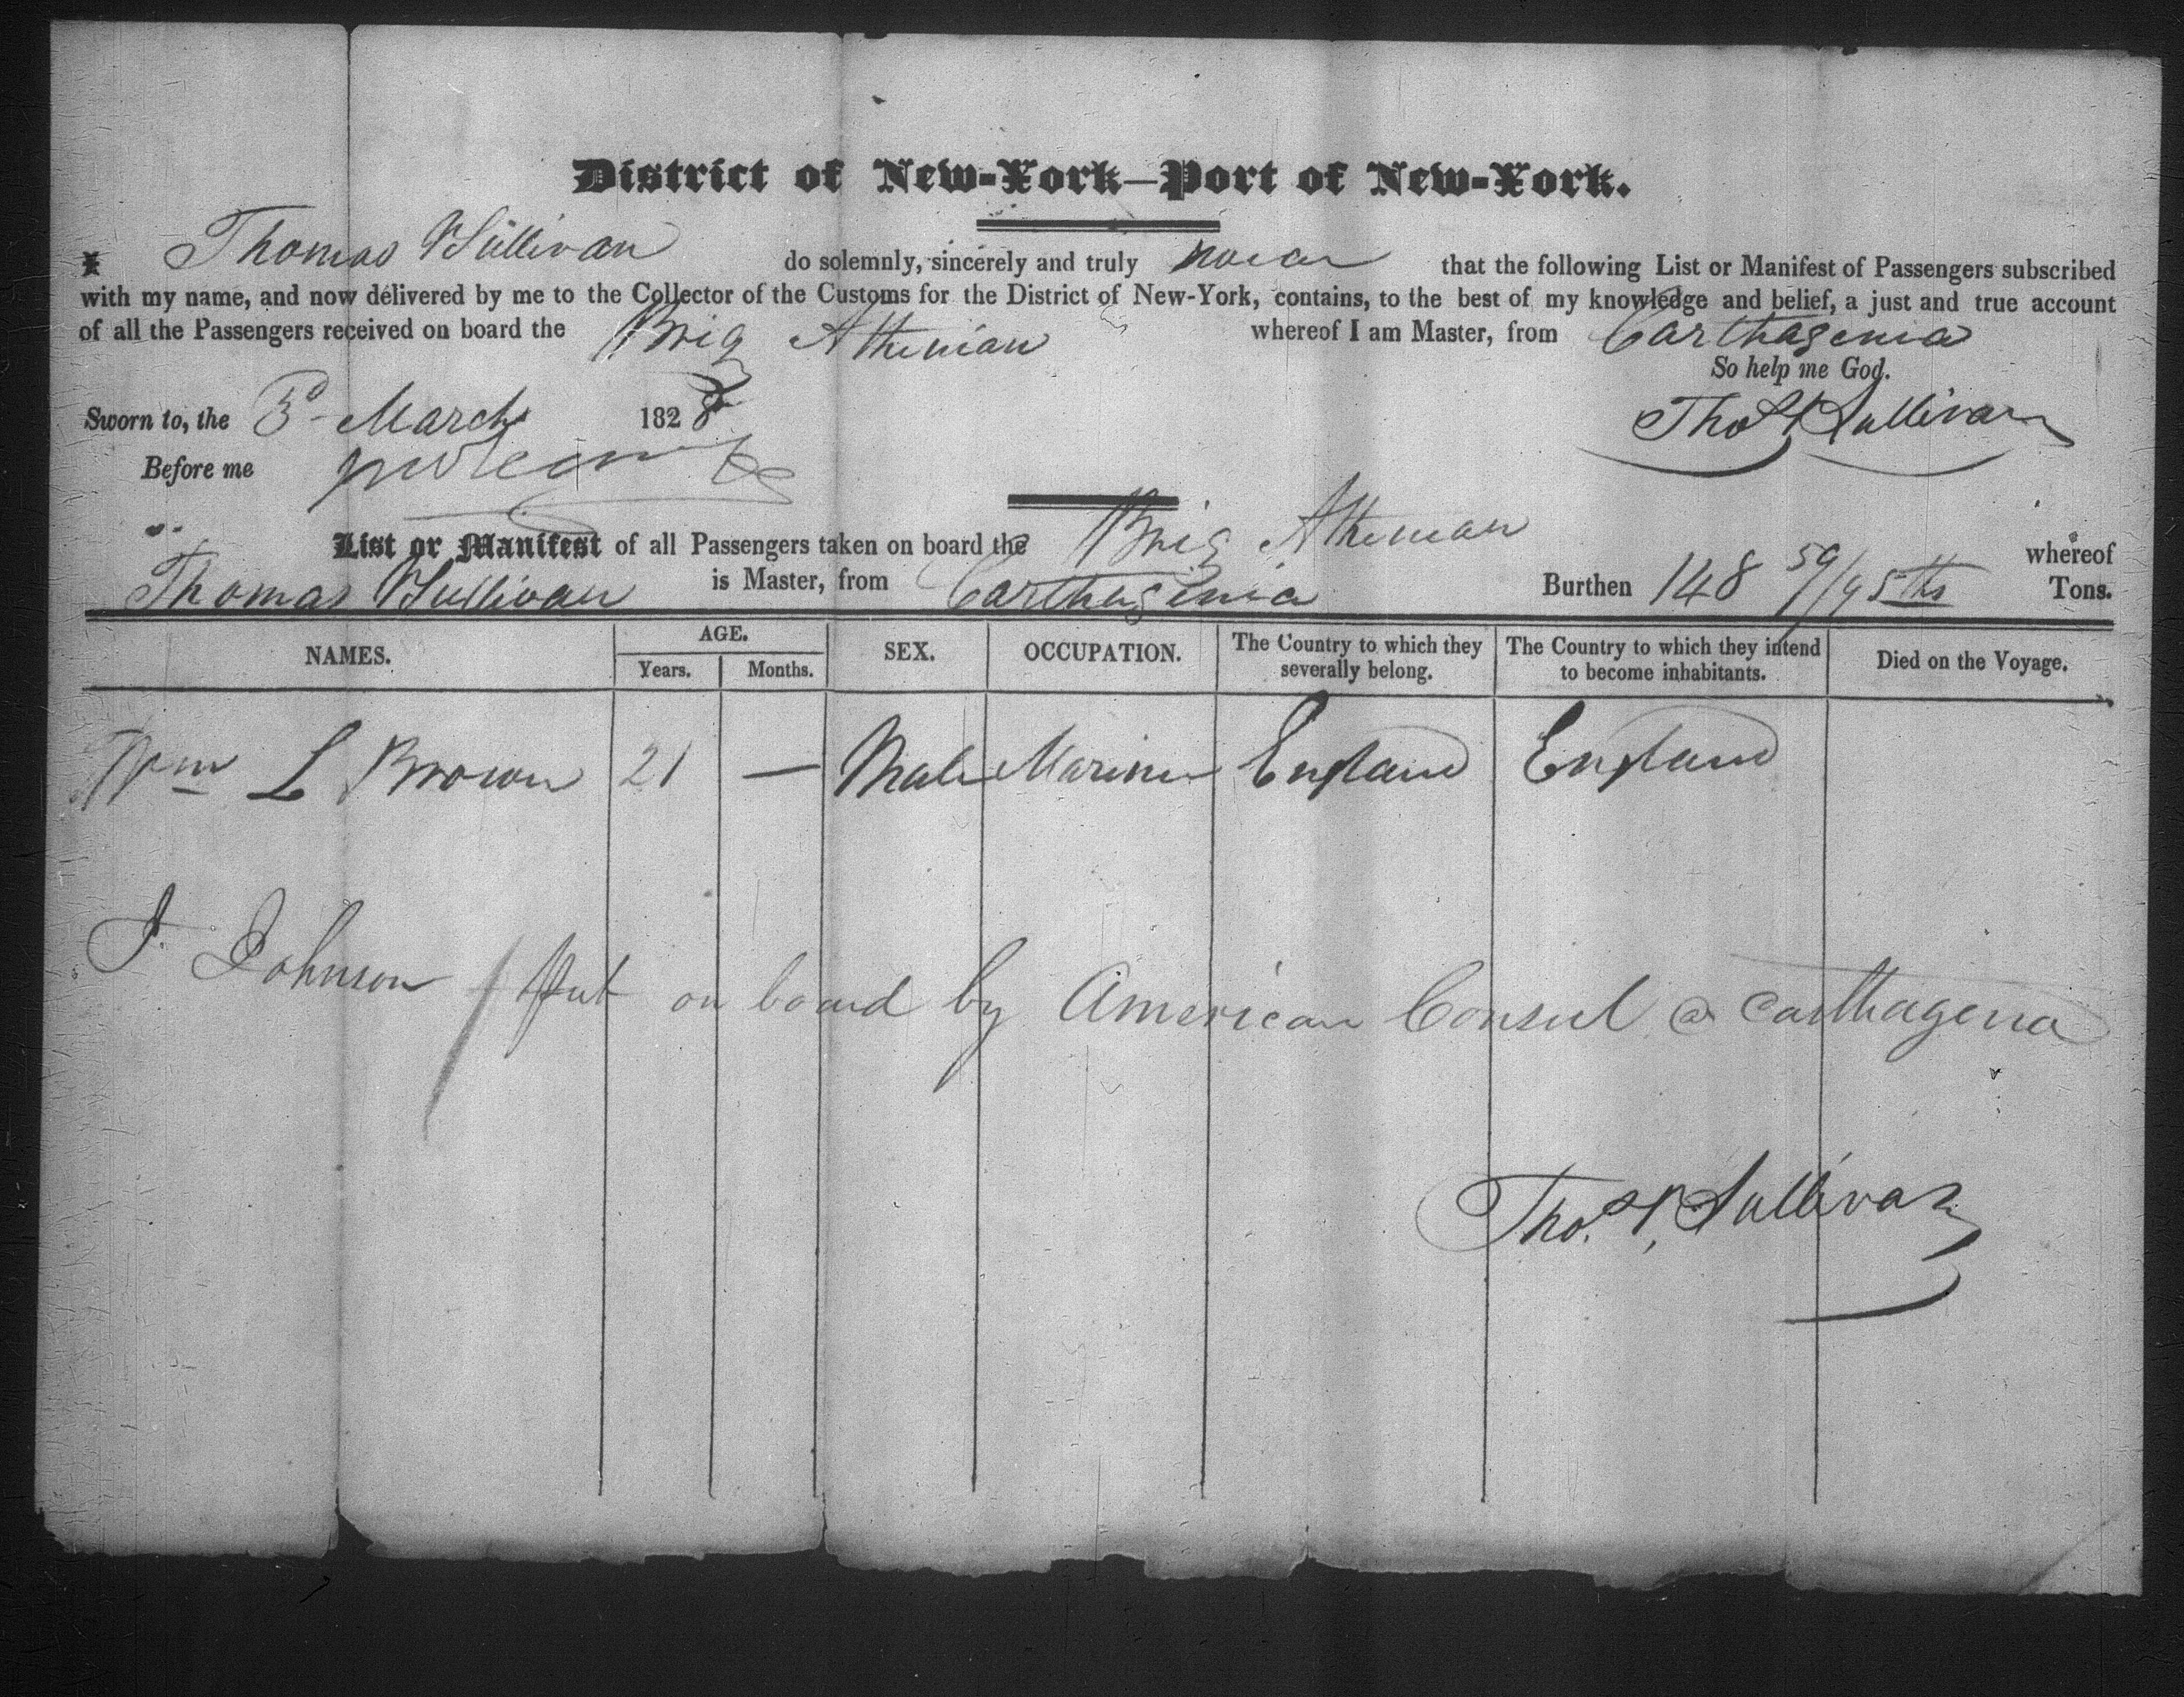 District of New-York—Port of New-York.
I Thomas V Sullivan do solemnly, sincerely and truly swear that the following List or Manifest of Passengers subscribed
with my name, and now delivered by me to the Collector of the Customs for the District of New-York, contains, to the best of my knowledge and belief, a just and true account
of all the Passengers received on board the Brig Athenian whereof I am Master, from Carthagenia
So help me God.
Sworn to, the 3d March 1828 Thos V Sullivan
Before me
List or Manifest of all Passengers taken on board the Brig Athenian whereof
Thomas V Sullivan is Master, from Carthagenia Burthen 148 59/95ths Tons.
NAMES. AGE. SEX. OCCUPATION. The Country to which they severally belong. The Country to which they intend to become inhabitants. Died on the Voyage.
Years. Months.
Wm L Brown 21 — Male Mariner England England
J. Johnson / Put on board by American Consul @ Carthagena
Thos. V. Sullivan